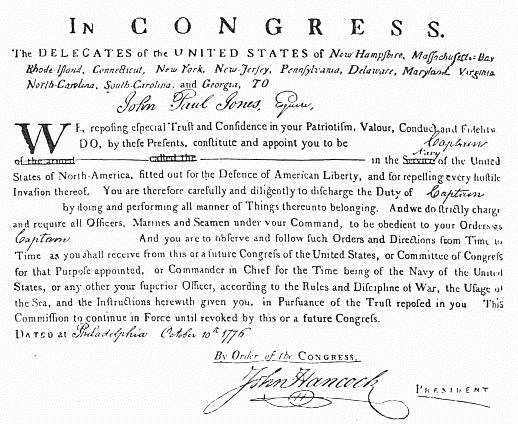 IN CONGRESS.
The DELEGATES of the UNITED STATES of New Hampshire, Massachusetts-Bay
Rhode-Island, Connecticut, New York, New-Jersey, Pennsylvania, Delaware, Maryland, Virginia
North-Carolina, South-Carolina, and Georgia, TO
John Paul Jones, Esquire,
WE, reposing especial Trust and Confidence in your Patriotism, Valour, Conduct, and Fidelity
DO, by these Presents, constitute and appoint you to be Captain
of the armed called the in the Service Navy of the United
States of North-America, fitted out for the Defence of American Liberty, and for repelling every hostile
Invasion thereof. You are therefore carefully and diligently to discharge the Duty of Captain
by doing and performing all manner of Things thereunto belonging. And we do strictly charge
and require all Officers, Marines and Seamen under your Command, to be obedient to your Orders as
Captain And you are to observe and follow such Orders and Directions from Time to
Time as you shall receive from this or a future Congress of the United States, or Committee of Congress
for that Purpose appointed, or Commander in Chief for the Time being of the Navy of the United
States, or any other your superior Officer, according to the Rules and Discipline of War, the Usage of
the Sea, and the Instructions herewith given you, in Pursuance of the Trust reposed in you. This
Commission to continue in Force until revoked by this or a future Congress.
DATED at Philadelphia October 10th 1776
By Order of the CONGRESS,
John Hancock PRESIDENT